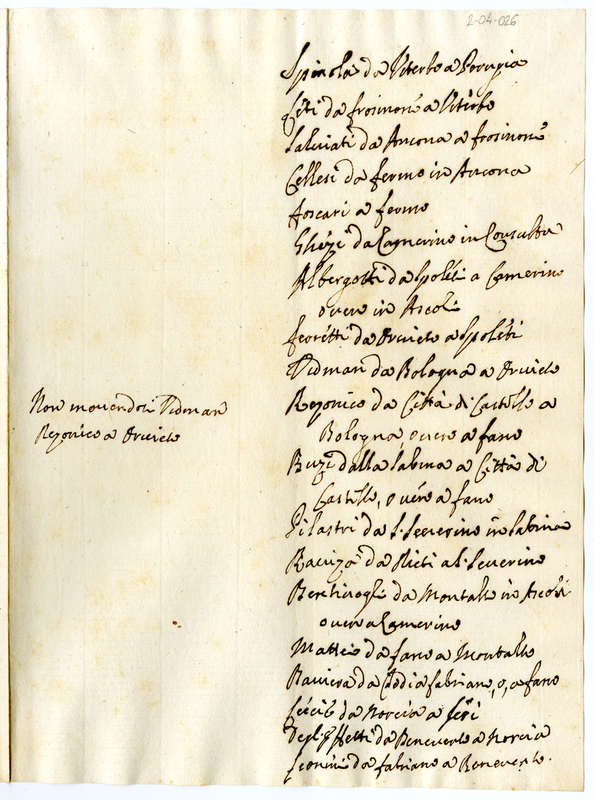 2-04-026
Spinola da Viterbo a Perugia
Citi da frosinone a Viterbo
Salviati da Ancona a frosinone
Cellesi da fermo in Ancona
foscari a fermo
Ghezi da Camerino in Consulta
Albergotti da Spoleti a Camerino
overo in Ascoli
feoretti da Orvieto a Spoleti
Vidman da Bologna a Orvieto
Non movendosi Vidman
Rezonico a Orvieto
Rezonico da Città di Castello a
Bologna, overo a fano
Buzi dalla Sabina a Città di
Castello, o vero a fano
Pilastri da S. Severino in Sabina
Ravizza da Rieti a S. Severino
Bentivogli da Montalto in Ascoli
overo a Camerino
Mattei da fano a Montalto
Baviera da Todi a fabriano, o, a fano
da Norcia a
degl'Effetti da Benevento a Norcia
da fabriano a Benevento.